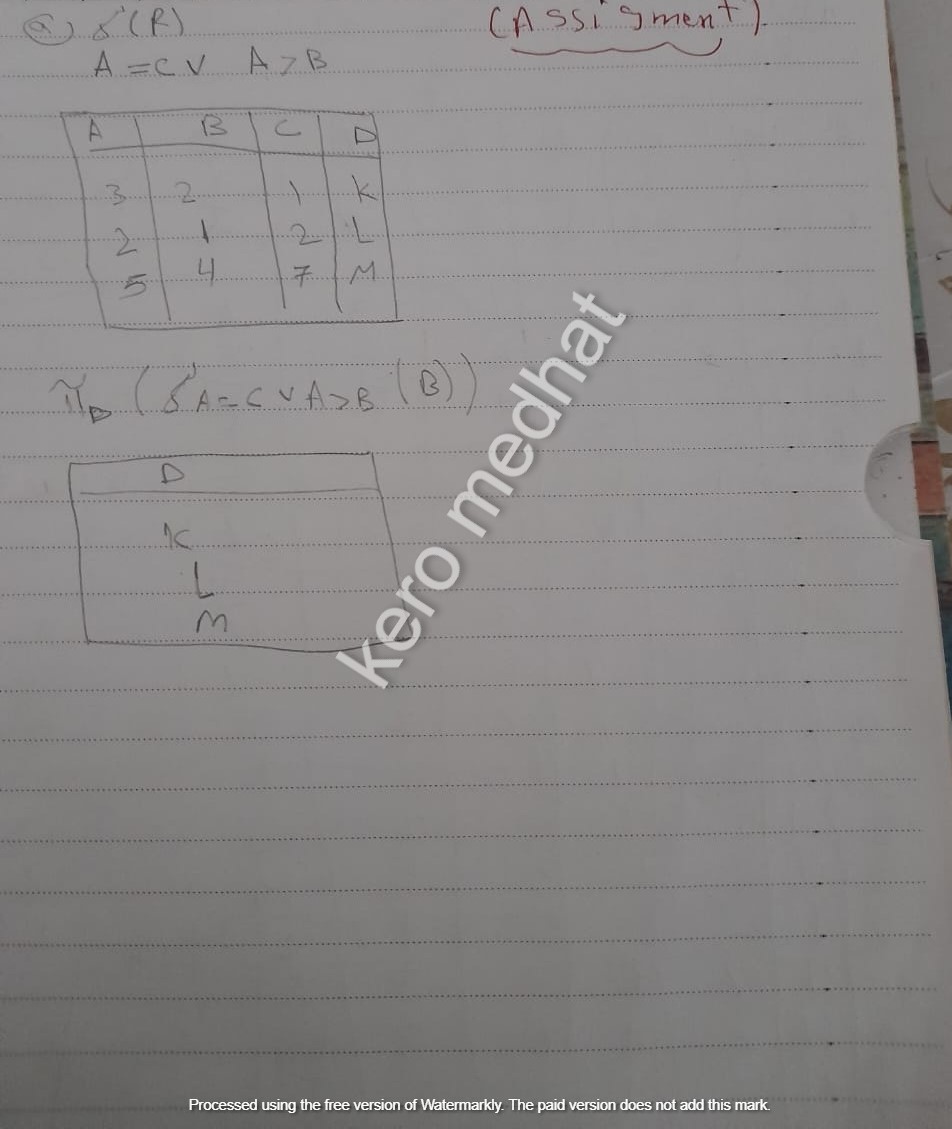 a) σ(R)
(Assigment)
A = C ∨ A > B
A B C D
3 2 1 K
2 1 2 L
5 4 7 M
π D (σ A = C ∨ A > B (B))
D
K
L
M
kero medhat
Processed using the free version of Watermarkly. The paid version does not add this mark.